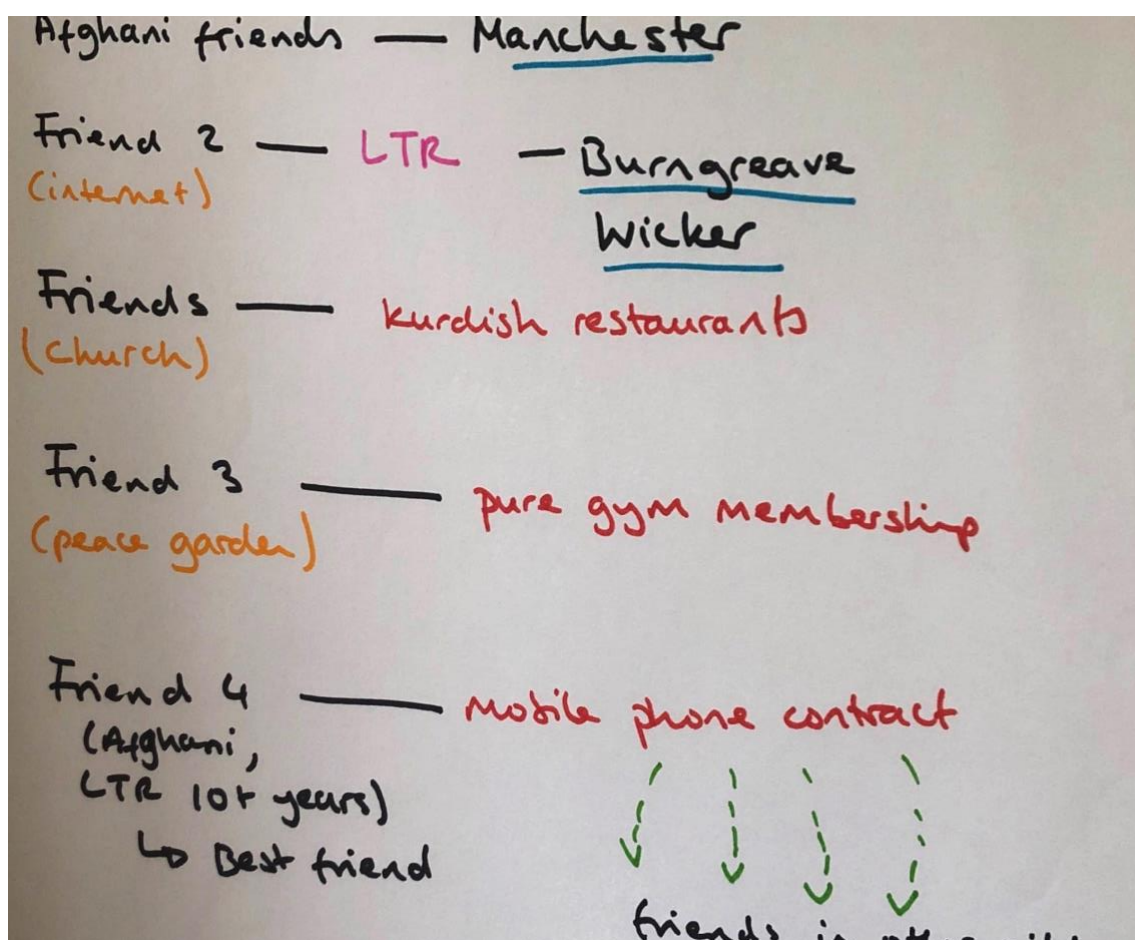 Afghani friends — Manchester
Friend 2 — LTR — Burngreave
(internet)
Wicker
Friends — kurdish restaurants
(church)
Friend 3 — pure gym membership
(peace garden)
Friend 4 — mobile phone contract
(Afghani,
LTR 10+ years)
↳ Best friend
friends in